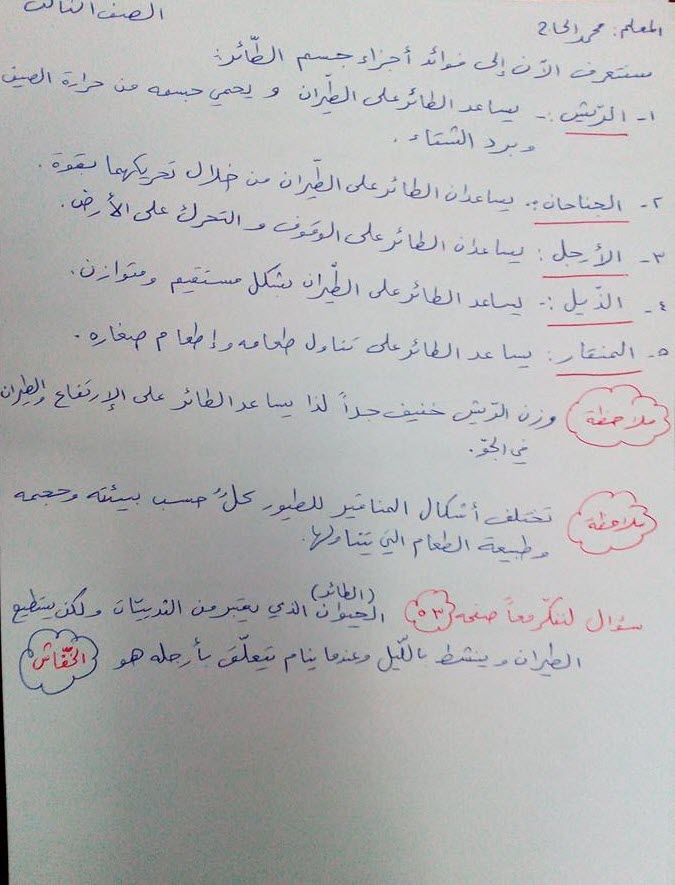 الصف الثالث
المعلم: محمد الحاج
سنتعرف الآن إلى فوائد أجزاء جسم الطّائر:
١- الرّيش :- يساعد الطائر على الطّيران و يحمي جسمه من حرارة الصيف
وبرد الشتاء.
٢- الجناحان :- يساعدان الطائر على الطّيران من خلال تحريكهما بقوة.
٣- الأرجل : يساعدان الطائر على الوقوف و التحرك على الأرض.
٤- الذّيل :- يساعد الطائر على الطّيران بشكل مستقيم ومتوازن.
٥- المنقار : يساعد الطائر على تناول طعامه وإطعام صغاره.
ملاحظة وزن الرّيش خفيف جداً لذا يساعد الطائر على الإرتفاع والطيران
في الجوّ.
ملاحظة تختلف أشكال المناقير للطيور كلٌ حسب بيئته وحجمه
وطبيعة الطعام التي يتناولها.
(الطائر)
سؤال لنفكّر معاً صفحه ٥٣ الحيوان الذي يعتبر من الثدييّات ولكن يستطيع
الطيران وينشط بالّليل وعندما ينام يتعلّق بأرجله هو الخفّاش